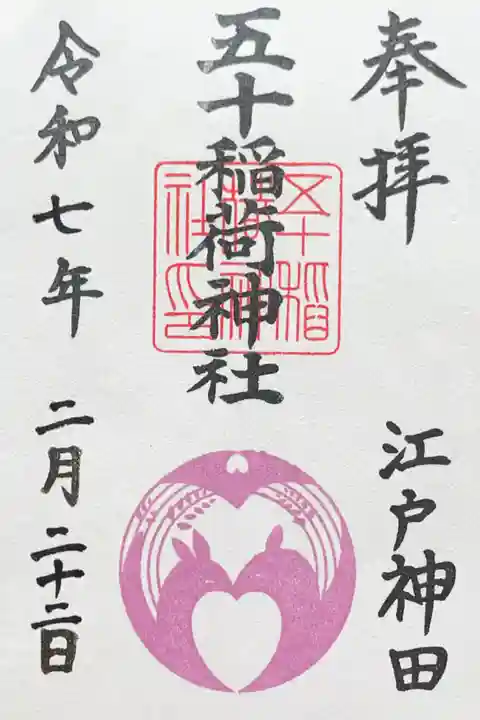 奉拝
江戸神田
五十稲荷神社
五十稲
荷神
社印
令和七年
二月二十二日